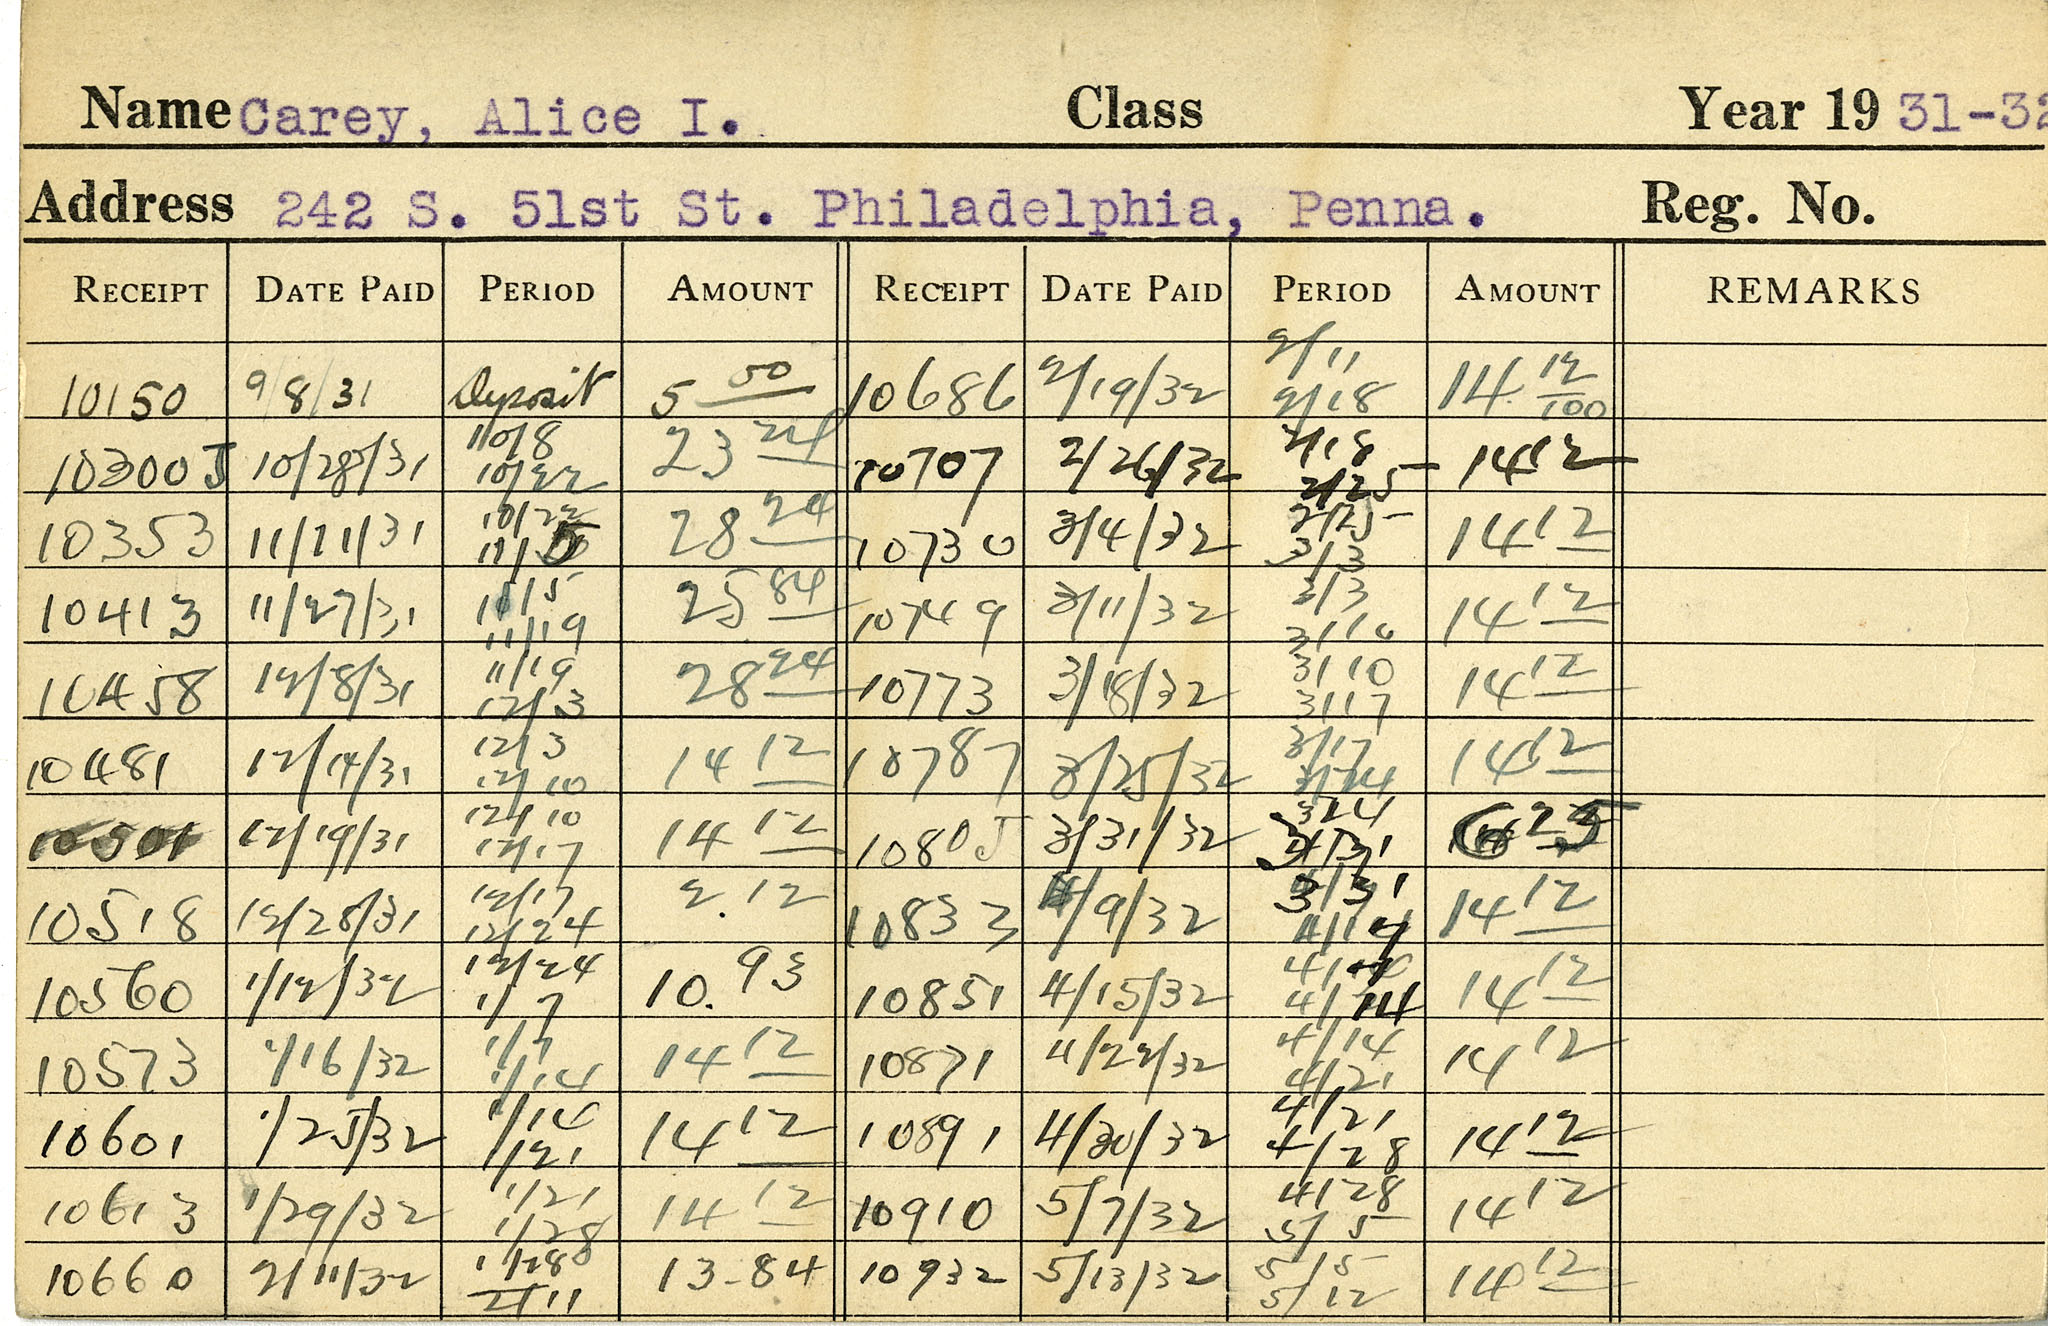 Name Carey, Alice I. Class Year 19 31-32
Address 242 S. 51st St. Philadelphia, Penna. Reg. No.
RECEIPT DATE PAID PERIOD AMOUNT RECEIPT DATE PAID PERIOD AMOUNT REMARKS
10150 9/8/31 Deposit 5 00 10686 2/19/32 2/11 2/18 14 12/100
10300J 10/28/31 10/8 10/22 23 24 10707 2/26/32 2/18 2/25 14 12
10353 11/11/31 10/22 11/5 28 24 10730 3/4/32 2/25 3/3 14 12
10413 11/27/31 11/5 11/19 25 84 10749 3/11/32 3/3 3/10 14 12
10458 12/8/31 11/19 12/3 28 24 10773 3/18/32 3/10 3/17 14 12
10481 12/14/31 12/3 12/10 14 12 10787 3/25/32 3/17 3/24 14 12
10501 12/19/31 12/10 12/17 14 12 10805 3/31/32 3/24 3/31 6 25
10518 12/28/31 12/17 12/24 2.12 10833 4/9/32 3/31 4/7 14 12
10560 1/12/32 12/24 1/7 10.93 10851 4/15/32 4/7 4/14 14 12
10573 1/16/32 1/7 1/14 14 12 10871 4/22/32 4/14 4/21 14 12
10601 1/25/32 1/14 1/21 14 12 10891 4/30/32 4/21 4/28 14 12
10613 1/29/32 1/21 1/28 14 12 10910 5/7/32 4/28 5/5 14 12
10660 2/11/32 1/28 2/11 13-84 10932 5/13/32 5/5 5/12 14 12